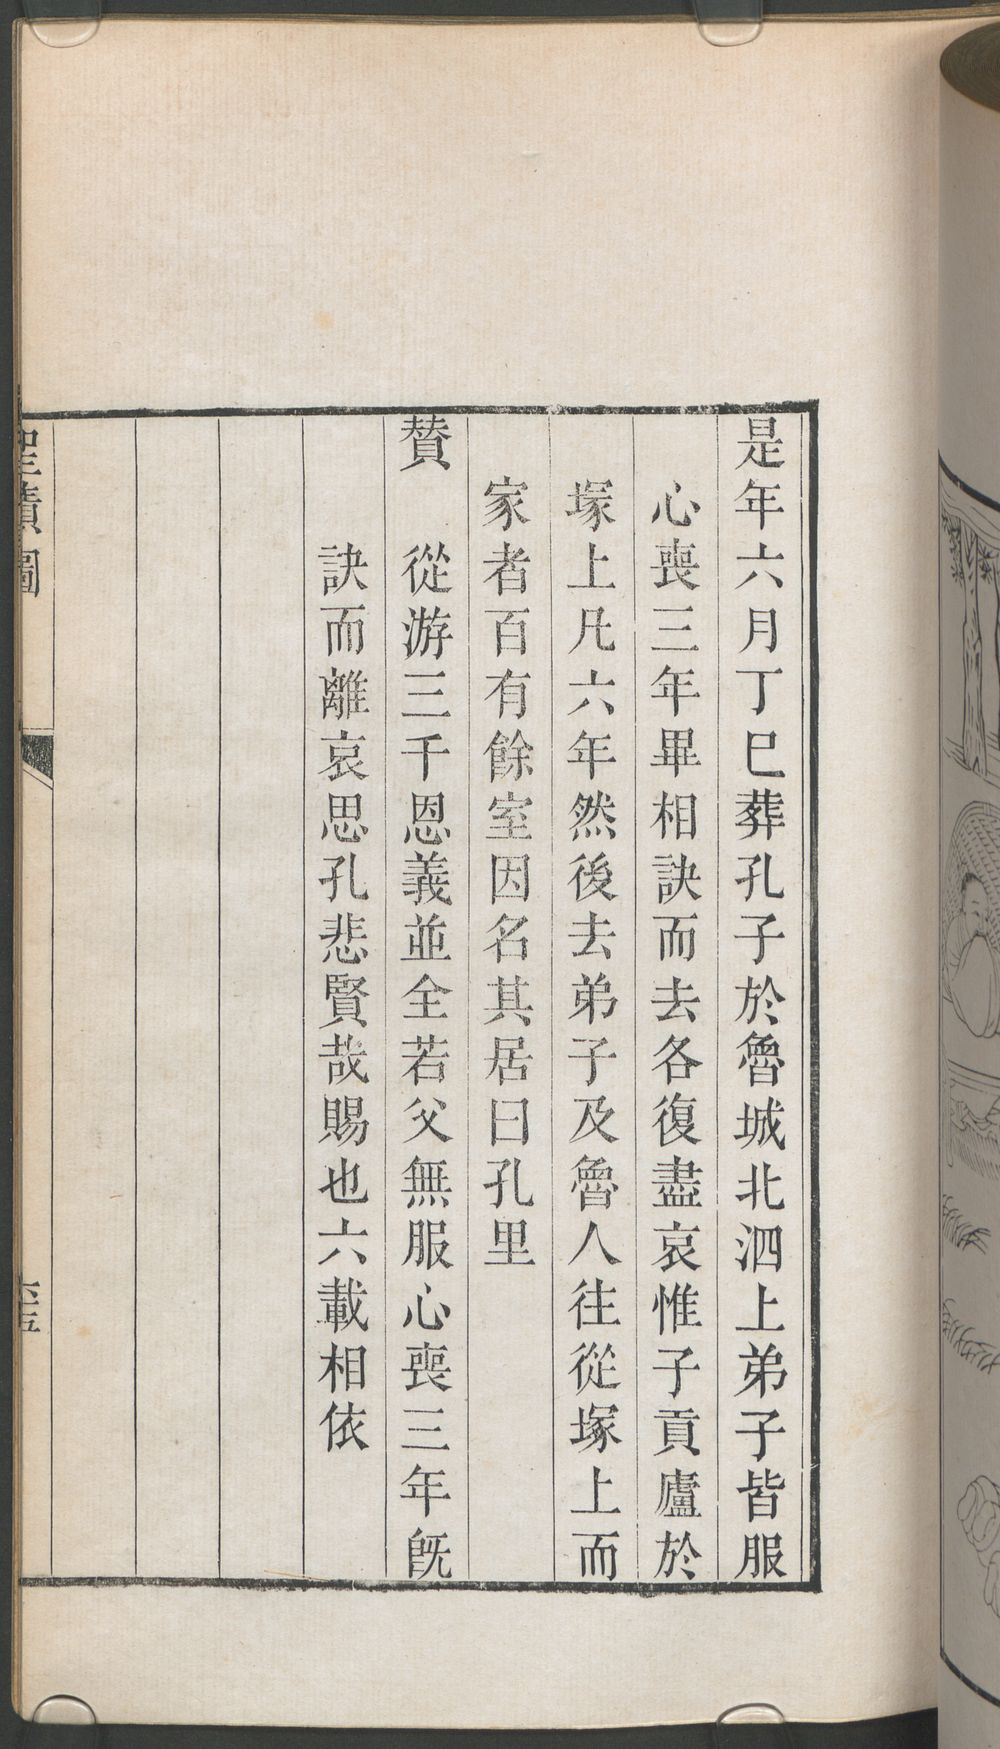 是年六月丁巳葬孔子於魯城北泗上弟子皆服
心喪三年畢相訣而去各復盡哀惟子貢廬於
塚上凡六年然後去弟子及魯人往從塚上而
家者百有餘室因名其居曰孔里
贊　從游三千恩義並全若父無服心喪三年旣
訣而離哀思孔悲賢哉賜也六載相依
聖蹟圖